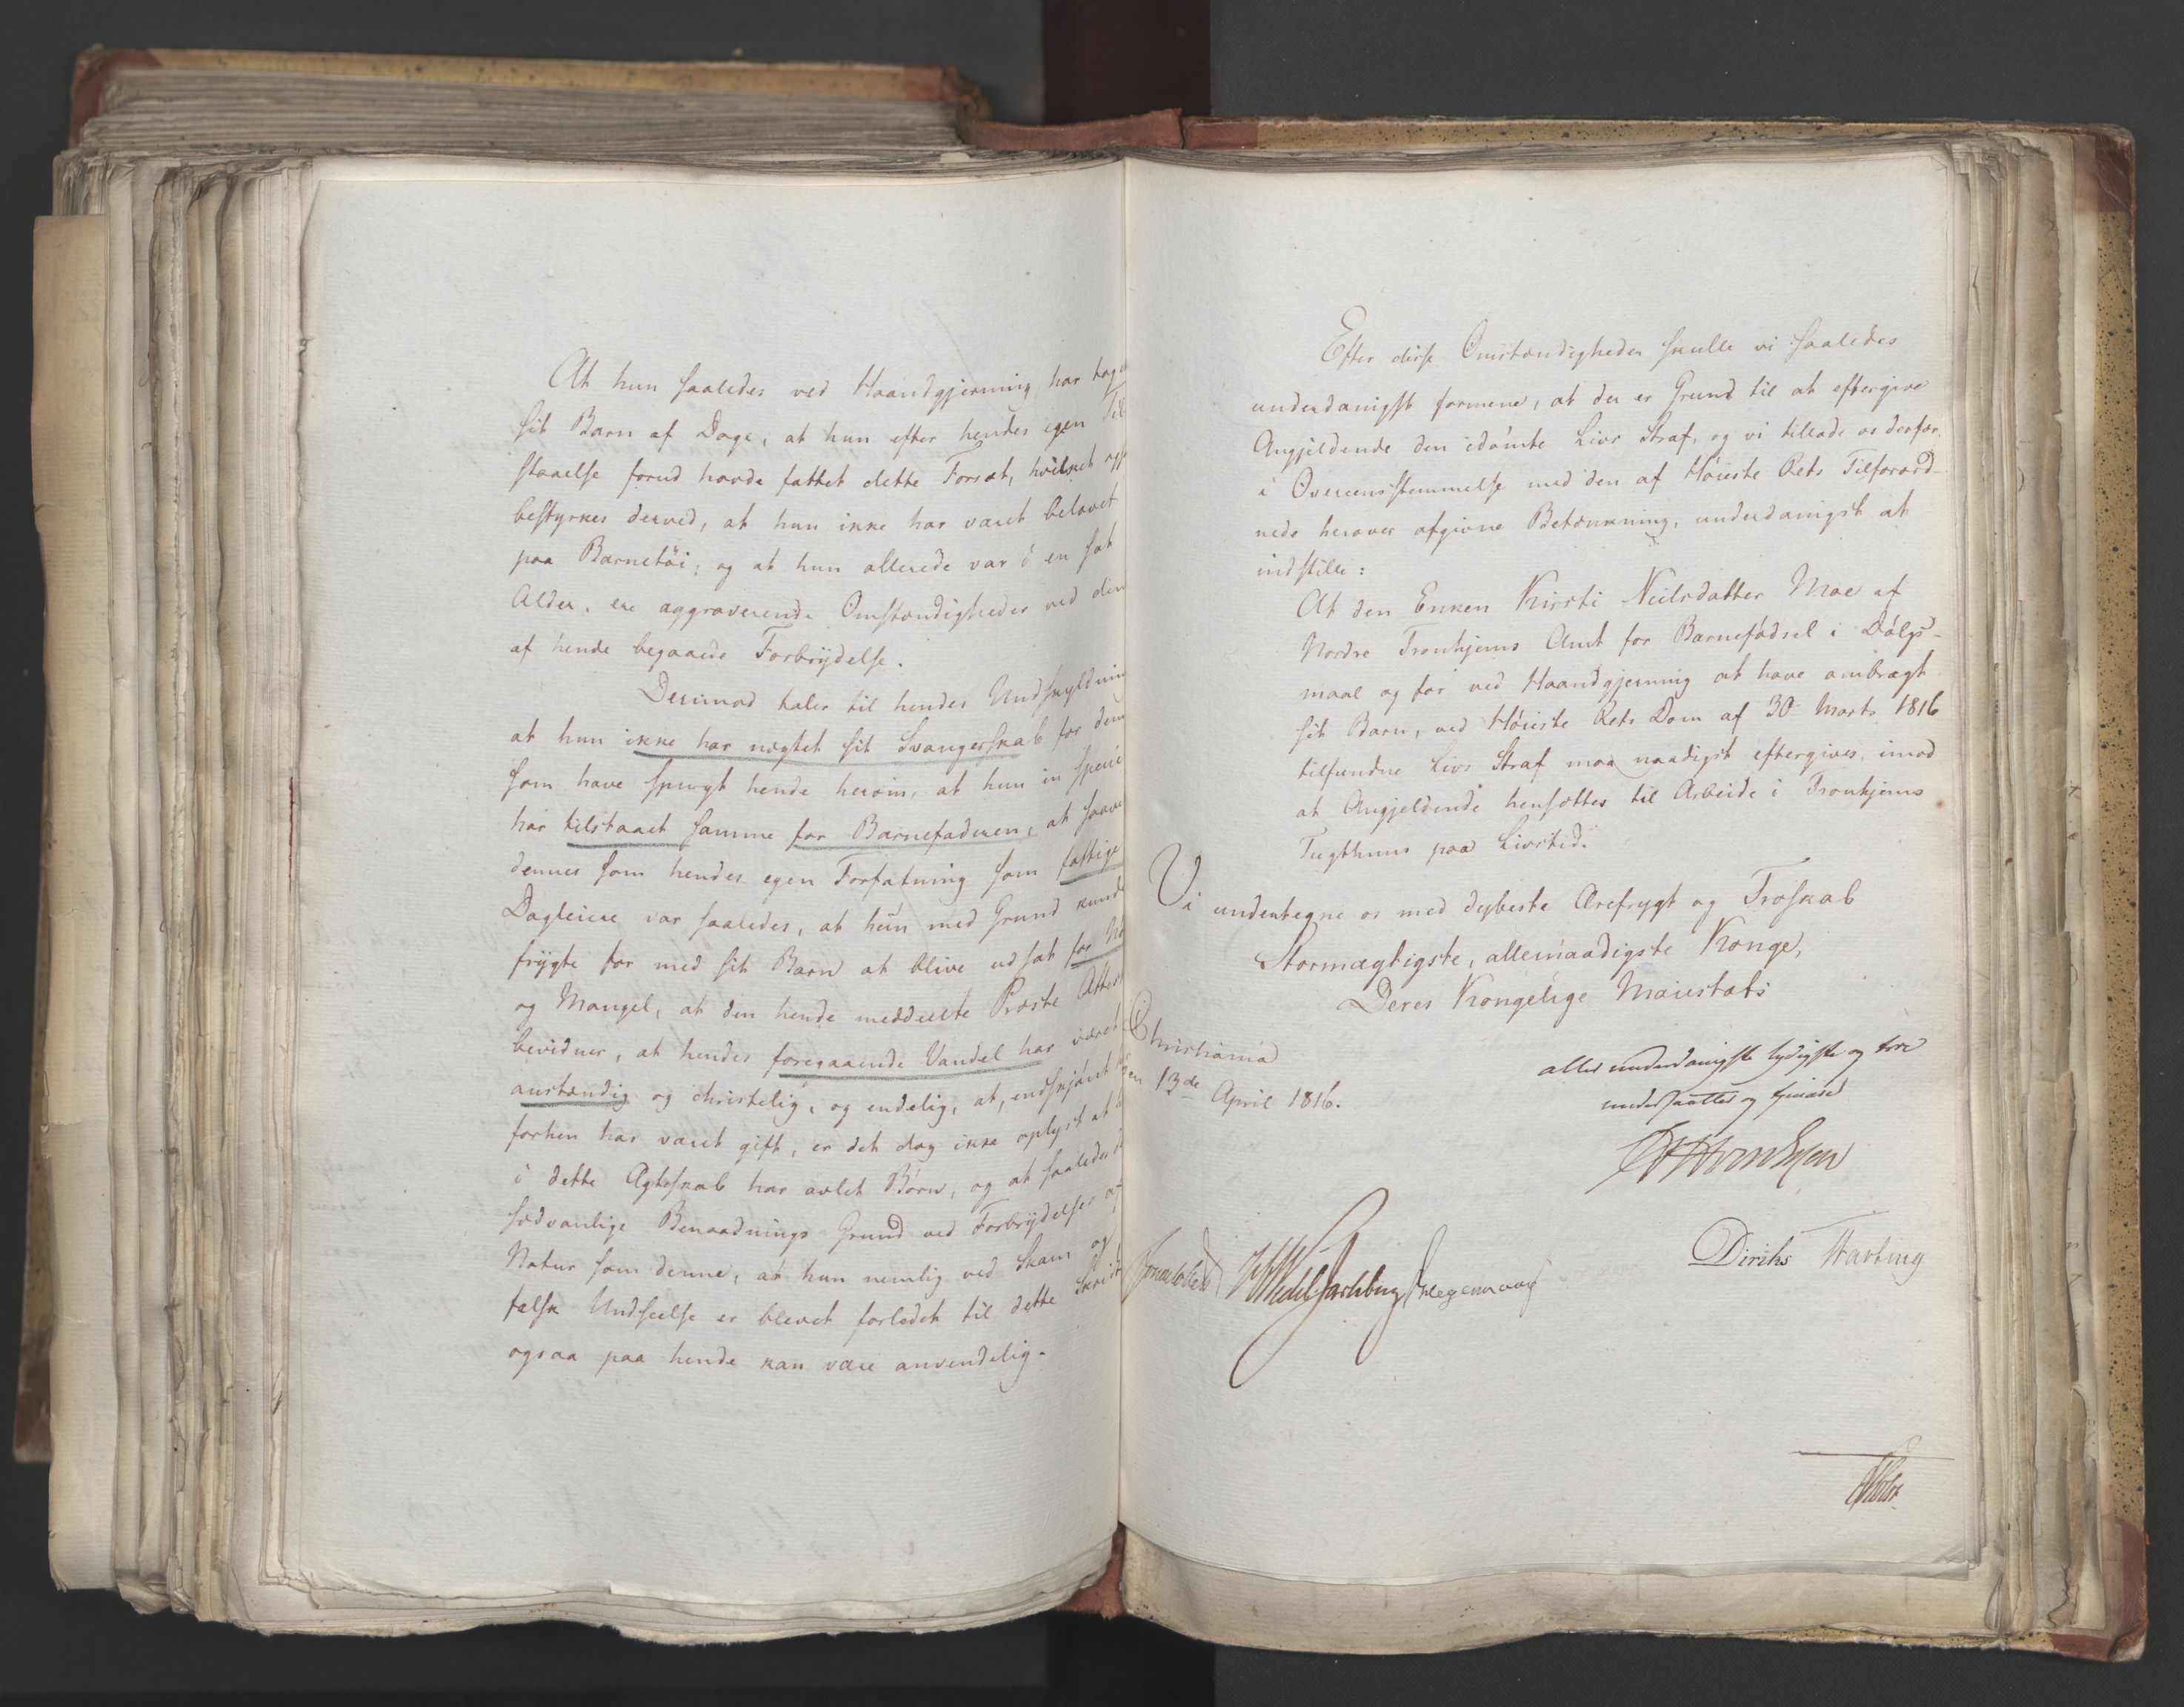 At hun saaledes ved Haandgjerning har tag
sit Barn af Dage, at hun efter hendes egen Til
staaelse forud havde fattet dette Forsæt, hvilket ogs
bestyrkes derved, at hun ikke har været belavet
paa Barnetöi, og at hun allerede var i en sat
Alder, ere aggraverende Omstændigheder ved den
af hende begaaede Forbrydelse.
Derimod taler til hendes Undskyldnin
at hun ikke har nægtet sit Svangerskab for dem
som have spurgt hende herom, at hun in specie
har tilstaaet samme for Barnefaderen, at saave
dennes som hendes egen Forfatning som fattige
Dagleiere var saaledes, at hun med Grund kunde
frygte for med sit Barn at blive udsat for Nö
og Mangel, at den hende meddeelte Præste Attest
bevidner, at hendes foregaaende Vandel har været
anstændig og christelig, og endelig, at, endskjönt
forhen har været gift, er det dog ikke oplyst at
i dette Ægteskab har avlet Börn, og at saaledes
sædvanlige Benaadnings Grund ved Forbrydelser af
Natur som denne, at hun nemlig ved Skam og
falsk Undseelse er blevet forledet til dette Skridt
ogsaa paa hende kan være anvendelig.
Efter disse Omstændigheder skulle vi saaledes
underdanigst formene, at der er Grund til at eftergive
Angjeldende den idömte Livs Straf, og vi tillade os derfor,
i Overeensstemmelse med den af Höieste Rets Tilforord-
nede herover afgivne Betænkning, underdanigst at
indstille:
At den Enken Kirsti Neilsdatter Moe af
Nordre Tronhjems Amt for Barnefödsel i Dölgs-
maal og for ved Haandgjerning at have ombragt
sit Barn, ved Höieste Rets Dom af 30 Marts 1816
tilfundne Livs Straf maa naadigst eftergives, imod
at Angjeldende hensættes til Arbeide i Tronhjems
Tugthuus paa Livstid.
Vi undertegne os med dybeste Ærefrygt og Troskab
Stormægtigste, allernaadigste Konge,
Deres Kongelige Maiestæts
Christiania
den 13de April 1816.
allerunderdanigste lydigste og troe
undersaatter og tjenere
Diriks Hartung
Sommerfeldt HWedelJarlsberg Krogh
Holst